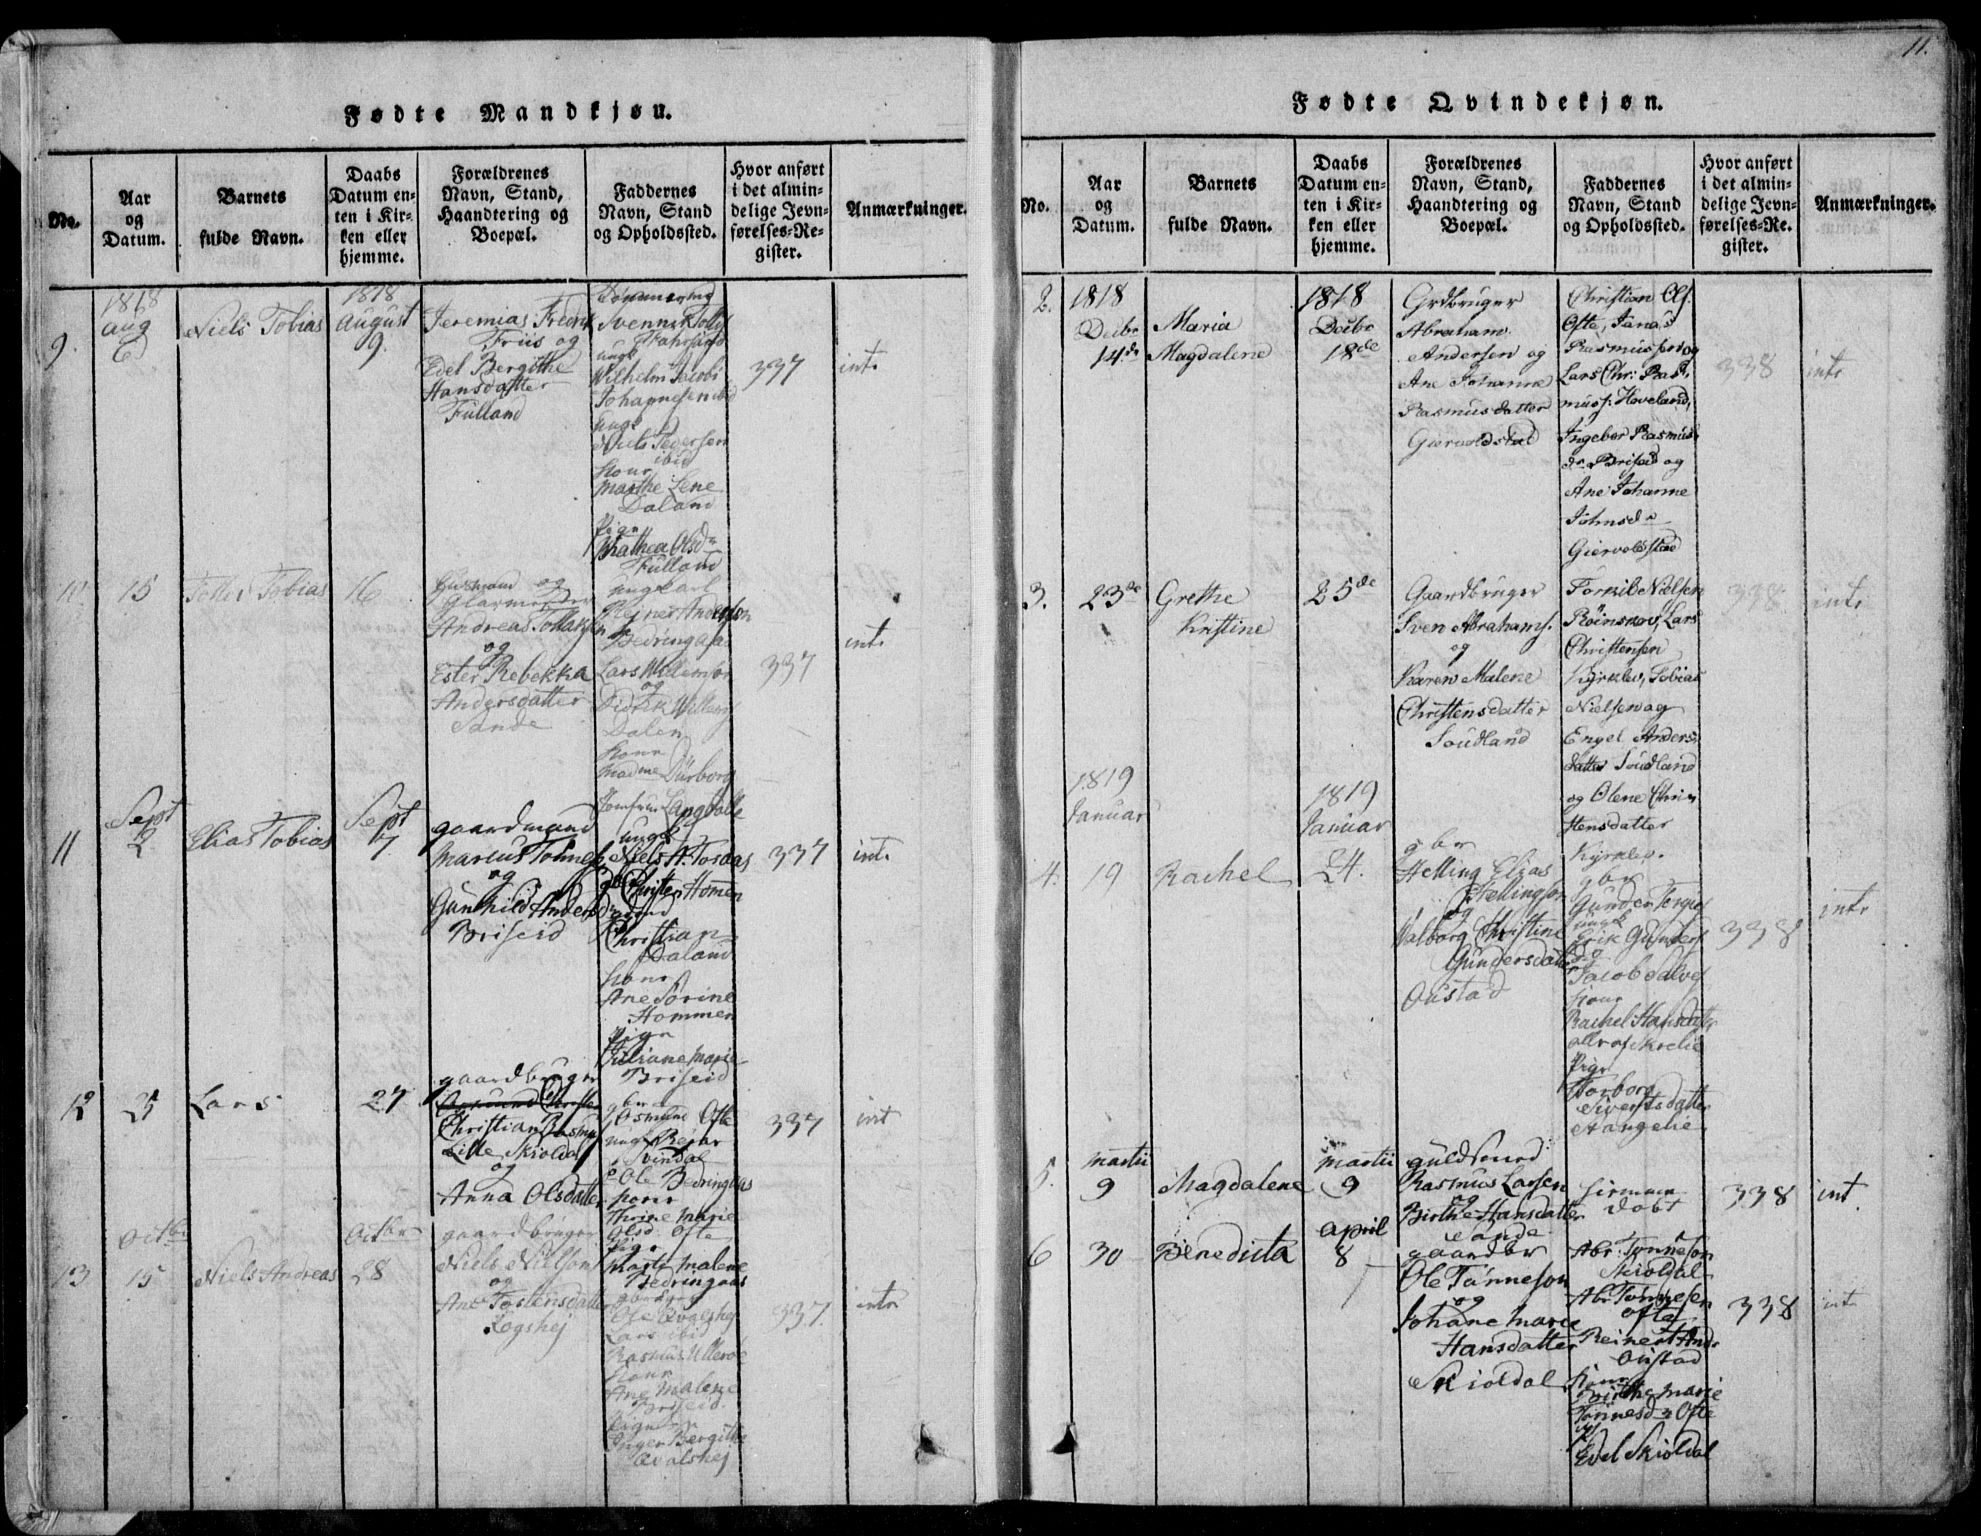 11.
Fødte Mandkjøn.
No.
Aar
og
Datum.
Barnets
fulde Navn.
Daabs
Datum en-
ten i Kir-
ken eller
hjemme.
Forældrenes
Navn, Stand,
Haandtering og
Boepæl.
Faddernes
Navn, Stand
og Opholdssted.
Hvor anført
i det almin-
delige Jevn-
førelses-Re-
gister.
Anmærkninger.
9.
1818
aug
6
Niels Tobias
1818
August
9.
Jeremias Fredrik
Friis og
Edel Bergithe
Hansdatter
Fulland
Wilhelm Jacobi
Johannesen ibid
ungk
Niels Pedersen
ibid
Konr
Marthe Lene
Daland
Pigr
Olsdr
Fulland
337
intr
10
15
Tellef Tobias
16
Huusmand og
Glarmester
Andreas Tollaksen
og
Ester Rebekka
Andersdatter
Sande
ungkarl
Andersson
Bedringaas
Lars Willumsen
og
Didrik Willumsf
Dalen
Konr
Madme Dürborg
Jomfrue Langdalle
337
intr
11
Sept
2
Elias Tobias
Sept
7.
gaardmand
Marcus Tönnesf
og
Gunhild Andersd
Briseid
ungk
Niels A. Tosaas
Christen Homen
Christian
Daland
konr
Ane Sörine
Hommen
Pigr
Juliane Marie
Briseid
337
int.
12
25
Lars
27
gaardbruger
Christian Rasmusf
Lille Skioldal
og
Anna Olsdatter
gbr
Osmund Ofte
ungk Rejar
Svindal
Ole Bedringaas
konr
Thrine Marie
Olsd. Ofte
Pigr
Marte Malene
Bedringaas
337
int
13
Octbr
15
Niels Andreas
Octbr
28
gaardbruger
Niels Nielson
og
Ane Tostensdatter
Kogshej
gaardbr
Ole Qvalshej
Lars ibid
Rasmus Ulleroe
Konr
Ane Malene
Briseid.
Pigr
Inger Bergitte
Qvalshej
337.
intr
Fødte Qvindekjøn.
No.
Aar
og
Datum.
Barnets
fulde Navn.
Daabs
Datum en-
ten i Kir-
ken eller
hjemme.
Forældrenes
Navn, Stand,
Haandtering og
Boepæl.
Faddernes
Navn, Stand
og Opholdssted.
Hvor anført
i det almin-
delige Jevn-
førelses-Re-
gister.
Anmærkninger.
2.
1818
Decbr
14de
Maria
Magdalene
1818
Decbr
18de
Grdbruger
Abraham
Andersen og
Ane Johanne
Rasmusdatter
Giervoldstad
Christian Olf.
Ofte, Jonas
Rasmussen og
Lars Chr: Ras-
musf. Hoveland,
Ingebor Rasmus-
dr. Briseid og
Ane Johanne
Johnsdr
Giervoldstad
338
intr
3.
23de
Grethe
Kristine
25de
Gaardbruger
Sven Abrahams.
og
Karen Malene
Christensdatter
Soudland
Torkil Nielsen
Röinskov, Lars
Christensen
Kyrklev, Tobias
Nielsen og
Engel Anders-
datter Soudland
og Olene Chri-
stensdatter
Kyrklev.
338
intr
4.
1819
Januar
19
Rachel
1819
Januar
24.
gbr
Helling Elias
Hellingson
og
Valborg Christine
Gundersdatter
Oustad
gbr
Gunder Tergief
ungk
Erik Gundersf
Jacob Salvesf
Konr
Rachel Hansdatter
alle af Skrelie
Pigr
Torborg
Sivertsdatter
Hangelie
338
intr
5.
Martii
9
Magdalene
Martii
9
Guldsmed
Rasmus Larsen
og
Birthe Hansdatter
Sande
hiemme
döbt
338
int.
6
30
Benedicta
April
8
gaardbr
Ole Tönneson
og
Johane Marie
Hansdatter
Skioldal
Abr. Tönneson
Skioldal
Abr Tönnesen
Ofte
Reinert Andr
Oustad
Konr
Birthe Marie
Tönnesdr Ofte
Edel Skioldal
338
intr